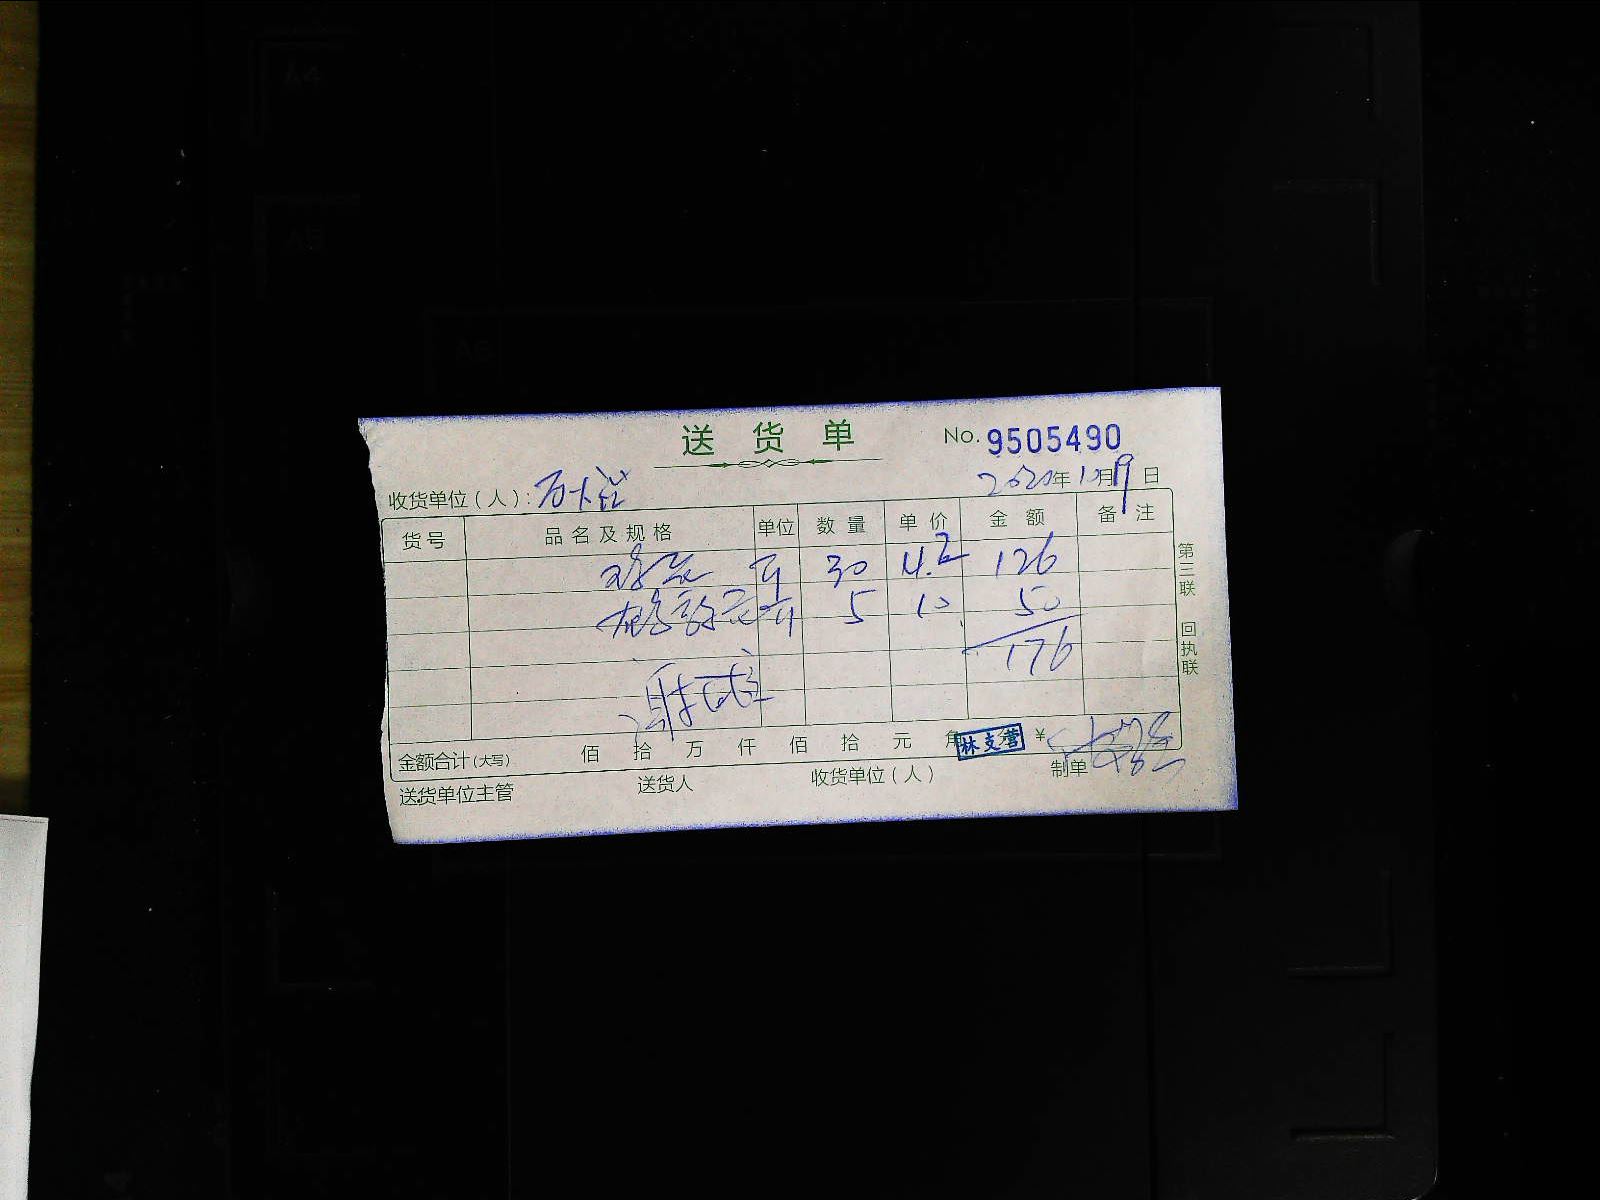 送货单
No. 9505490
收货单位（人）：
2020年10月19日
货号 品名及规格 单位 数量 单价 金额 备注
鸡蛋 斤 30 4.2 126
斤 5 10 50
176
金额合计(大写) 佰 拾 万 仟 佰 拾 元 角 分 ¥
林支营
送货单位主管 送货人 收货单位（人） 制单
第三联 回执联
A4
A5
A6